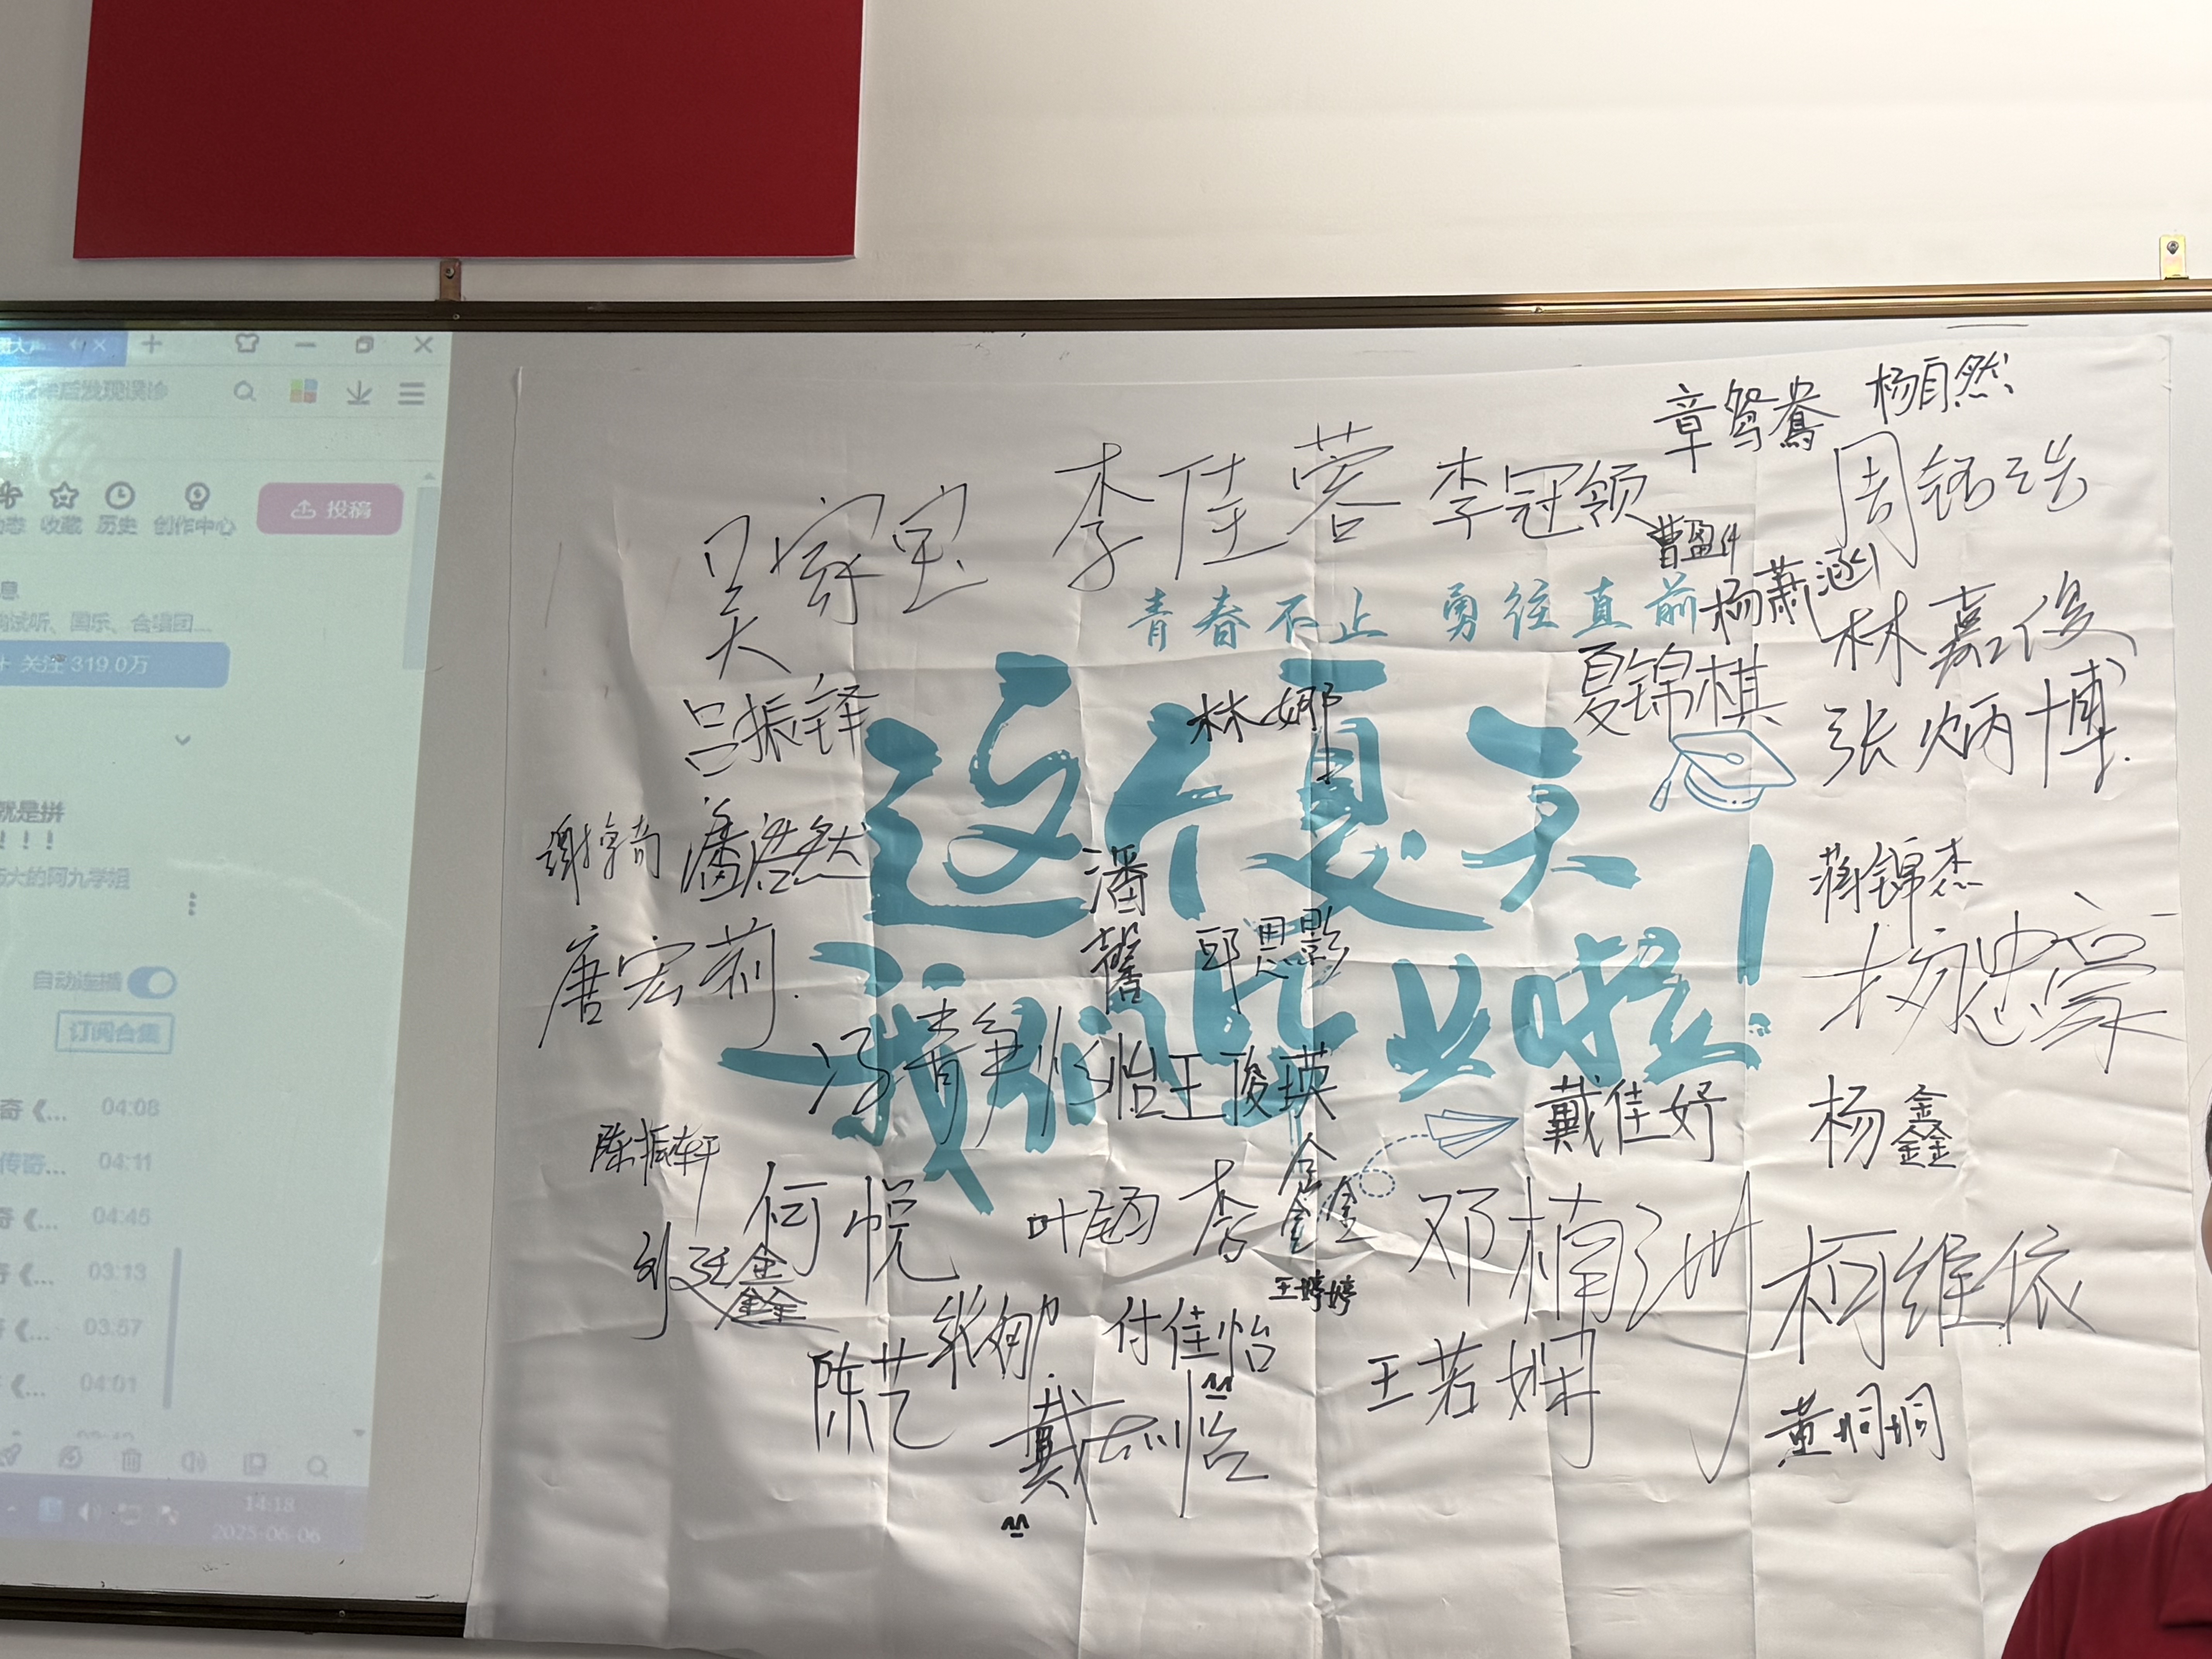 投稿
收藏
历史
创作中心
年后发现误诊
试听、国乐、合唱团...
关注 319.0万
就是拼
！！！
大的阿九学姐
自动连播
订阅合集
04:08
传奇...
04:11
04:45
03:13
03:57
04:01
14:18
2025-06-06
章鸳鸯
杨自然
李佳蓉
李冠领
吴家宝
青春不止 勇往直前
杨萧涵
林嘉俊
夏锦棋
吕振铎
林娜
张炳博
这个夏天
潘浩然
潘馨
蒋锦杰
唐宏莉
邱思影
我们毕业啦！
冯静怡
王俊瑛
戴佳妤
杨鑫
陈振轩
何悦
李鑫
邓楠洲
柯维依
刘廷鑫
王婷婷
付佳怡
陈艺
王若娴
戴怡
黄垌垌